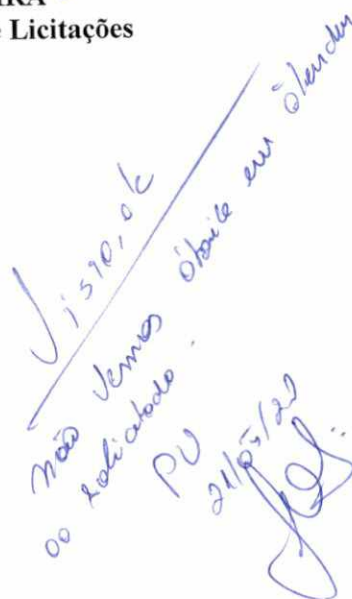 IRA
e Licitações
Visto, ok
não vemos óbice em atender
ao solicitado.
PV
21/05/20